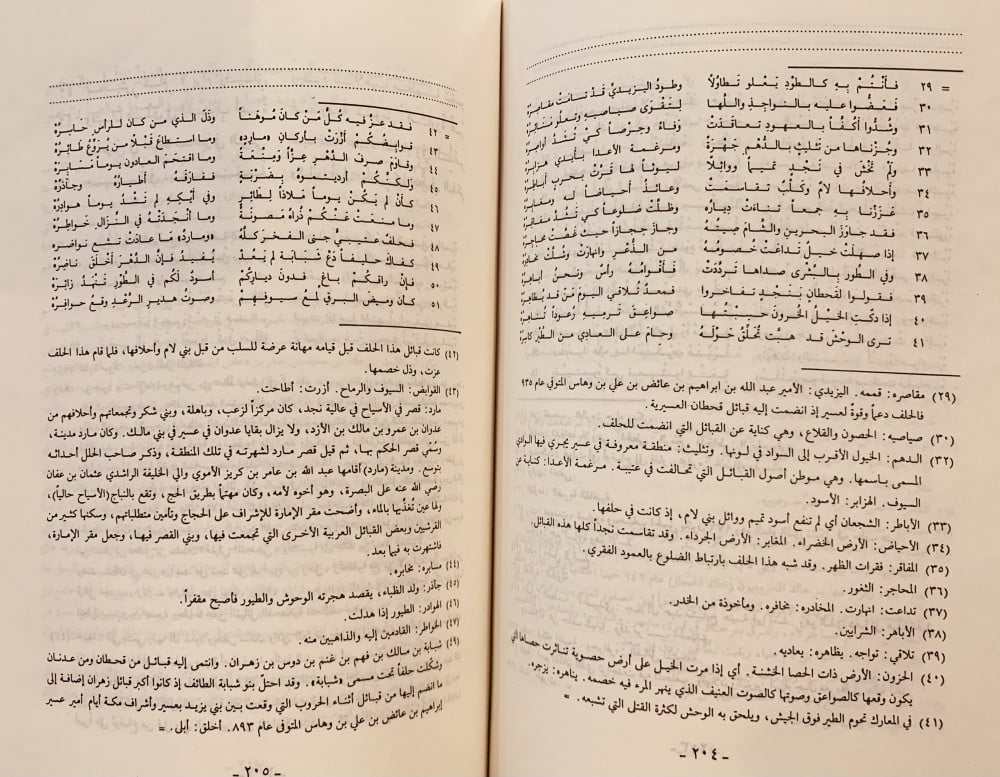 = ٢٩ فَأَنْتُمْ بِهِ كَالطَّوْدِ يَعْلُو تَطَاوُلًا وطودُ اليزيديُّ قَدْ تناءتْ مقاصِرُهْ
٣٠ فَعَضُّوا عليه بالنواجِذِ واللُّها لِتَقْوَى صياصيهِ وتعلُو
٣١ وشُدُّوا أكُفًّا بالعهودِ تعاقَدَتْ وَفاءً وحِرْصًا كَيْ تُشَدَّ أواصِرُهْ
٣٢ وحُزْناها من تثليثَ بالدُّهمِ جَهْرَةً ومرغمةُ الأعدا بأيدي هزابرُهْ
٣٣ ولم تَخْشَ في نَجْدٍ تميماً ووائلًا ليوثاً لها قَرَّتْ بحربٍ أباطِرُهْ
٣٤ وأحلافُها لامٌ وكَلْبٌ تقاسمَتْ وعائذُ أحياضاً له ومغابِرُهْ
٣٥ عَزَزْنا بِهِ جمعاً تناءَتْ ديارُه وظلَّتْ ضلوعاً كي تَشُدَّ مفاقِرُهْ
٣٦ فقد جاوَزَ البحرينِ والشَّامَ صِيْتُهُ وجازَ حِجازاً حيث غُصَّتْ محاجِرُهْ
٣٧ إذا صَهَلَتْ خيلٌ تداعَتْ خُصومُهُ من الذُّعْرِ وانهارَتْ وشُلَّتْ مخادِرُهْ
٣٨ وفي الطُّور بالبُشْرى صداها تردَّدَتْ فأقوامُهُ رأسٌ ونحنُ أباهِرُهْ
٣٩ فقولوا لقحطانٍ بنَجْدٍ تفاخروا فمعدُّ تُلاقي اليومَ مَنْ قد يُظاهِرُهْ
٤٠ إذا دكَّتِ الخيلُ الحُزونَ حسِبْتُها صواعِقَ تُربِهِ رُعوداً تُناهِرُهْ
٤١ ترى الوحْشَ قد هبَّتْ تُحَلِّقُ حَوْلَهُ وحامَ على العادي من الطَّيْرِ كاسِرُهْ
(٢٩) مقاصره: قممه. اليزيدي: الأمير عبد الله بن ابراهيم بن عائض بن علي بن وهاس المتوفي عام ٩٣٥
فالحلف دعماً وقوةً لعسير إذ انضمت إليه قبائل قحطان العسيرية.
(٣٠) صياصيه: الحصون والقلاع، وهي كناية عن القبائل التي انضمت للحلف.
(٣٢) الدهم: الخيول الأقرب إلى السواد في لونها. وتثليث: منطقة معروفة في عسير يجري فيها الوادي
المسمى باسمها. وهي موطن أصول القبائل التي تحالفت في عتيبة. مرغمة الأعدا: كناية عن
السيوف. الهزابر: الأسود.
(٣٣) الأباطر: الشجعان أي لم تنفع أسود تميم ووائل بني لام، إذ كانت في حلفها.
(٣٤) الأحياض: الأرض الخضراء. المغابر: الأرض الجرداء. وقد تقاسمت نجداً كلها هذه القبائل.
(٣٥) المفاقر: فقرات الظهر. وقد شبه هذا الحلف بارتباط الضلوع بالعمود الفقري.
(٣٦) المحاجر: الثغور.
(٣٧) تداعت: انهارت. المخادره: مخافره. ومأخوذة من الخدر.
(٣٨) الأباهر: الشرايين.
(٣٩) تلاقي: تواجه. يظاهره: يعاديه.
(٤٠) الحزون: الأرض ذات الحصا الخشنة. أي إذا مرت الخيل على أرض حصوية تناثرت حصاها التي
يكون وقعها كالصواعق وصوتها كالصوت العنيف الذي ينهر المرء فيه خصمه. يناهره: يزجره.
(٤١) في المعارك تحوم الطير فوق الجيش، ويلحق به الوحش لكثرة القتلى التي تشبعه. =
- ٢٠٤ -
= ٤٢ فقد عزَّ فيه كُلُّ مَنْ كانَ مُوهَناً وذَلَّ الذي من كان للرأسِ حابِرُهْ
٤٣ قوابِضُكُمْ أزرَتْ بأركانِ «مارِدٍ» وما استطاعَ قَبْلًا من يُرَوِّعُ طائِرُهْ
٤٤ وقاوَمَ صرفَ الدَّهْرِ عِزّاً ومِنْعَةً وما اقتحَمَ العادون يوماً مَسَابِرُهْ
٤٥ ولكنَّكُمْ أرديتموهُ بضَرْبَةٍ ففارَقَهُ أطيارُهُ وجآذِرُهْ
٤٦ كأنْ لم يَكُنْ يوماً مَلاذاً لِطائِرٍ وفي أيْكِهِ لم تَشْدُ يوماً هوادِرُهْ
٤٧ وما منعَتْ عَنْكُمْ ذُراهُ مَصونَةً وما أنْجَدَتْهُ في النِّزالِ خواطِرُهْ
٤٨ فحلفُ عتيبيٍّ جنى الفخرَ كلَّهُ «وماردُ» مَا عادَتْ تشع نواضره
٤٩ كفاكَ حليفاً دَعْ شَبابَةَ لم يَعُدْ يُفيدُ فإنَّ الدَّهْرَ أخْلَقَ ناضِرُهْ
٥٠ فإن راقكُمْ باغٍ فدونَ ديارِكُمْ أسودٌ لَكُم في الطَّوْدِ تَنْهَدُ زائِرَهْ
٥١ كأن وميضَ البرقِ لَمْعُ سيوفِهِمْ وصوتُ هديرِ الرَّعْدِ وقعُ حوافِرُهْ
(٤٢) كانت قبائل هذا الحلف قبل قيامه مهانة عرضة للسلب من قبل بني لام وأحلافها، فلما قام هذا الحلف
عزت، وذل خصمها.
(٤٣) القوابض: السيوف والرماح. أزرت: أطاحت.
مارد: قصر في الأسياح في عالية نجد، كان مركزاً لزعب، وباهلة، وبني شكر وتجمعاتهم وأحلافهم من
عدوان بن عمرو بن مالك بن الأزد، ولا يزال بقايا عدوان في عسير في بني مالك. وكان مارد مدينة،
وسُمّي قصر الحكم بها، ثم قيل قصر مارد لشهرته في تلك المنطقة، وذكر صاحب الحلل أحداثه
بتوسع. ومدينة (مارد) أقامها عبد الله بن عامر بن كريز الأموي والي الخليفة الراشدي عثمان بن عفان
رضي الله عنه على البصرة، وهو أخوه لأمه، وكان مهتماً بطريق الحج، وتقع بالنباج(الأسياح حالياً)،
رقاعين تُغذِّيها بالماء، وأضحت مقر الإمارة للإشراف على الحجاج وتأمين متطلباتهم، وسكنها كثير من
القرشيين وبعض القبائل العربية الأخرى التي تجمعت فيها، وبني القصر فيها، وجعل مقر الإمارة،
فاشتهرت به فيما بعد.
(٤٤) مسابره: مخابره.
(٤٥) جآذر: ولد الظباء، يقصد هجرته الوحوش والطيور فأصبح مقفراً.
(٤٦) الهوادر: الطيور إذا هدلت.
(٤٧) الخواطر: القادمين إليه والذاهبين منه.
(٤٩) شبابة بن مالك بن فهم بن غنم بن دوس بن زهران. وانتمى إليه قبائل من قحطان ومن عدنان
وشكلت حلفاً تحت مسمى «شبابة». وقد احتل بنو شبابة الطائف إذ كانوا أكبر قبائل زهران إضافة إلى
ما انضم إليها من قبائل أثناء الحروب التي وقعت بين بني يزيد بعسير وأشراف مكة أيام أمير عسير
إبراهيم بن عائض بن علي بن وهاس المتوفى عام ٨٩٣. أخلق: أبلى. =
- ٢٠٥ -